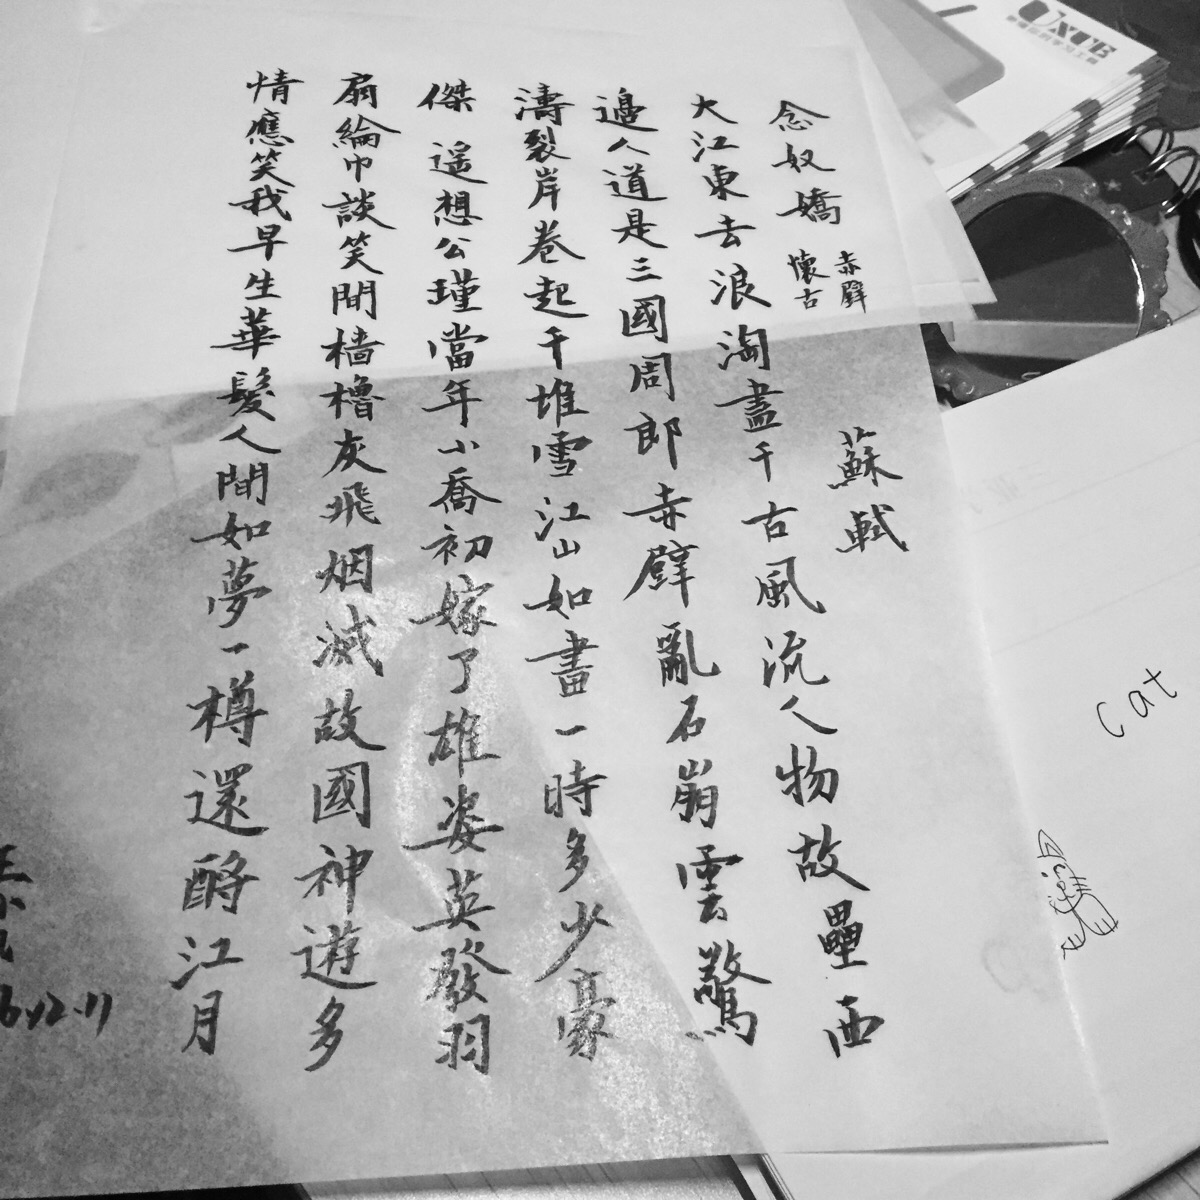 念奴嬌 赤壁懷古
蘇軾
大江東去浪淘盡千古風流人物故壘西
邊人道是三國周郎赤壁亂石崩雲驚
濤裂岸卷起千堆雪江山如畫一時多少豪
傑 遥想公瑾當年小喬初嫁了雄姿英發羽
扇綸巾談笑間檣櫓灰飛烟滅故國神遊多
情應笑我早生華髮人間如夢一樽還酹江月
UXCE
Cat